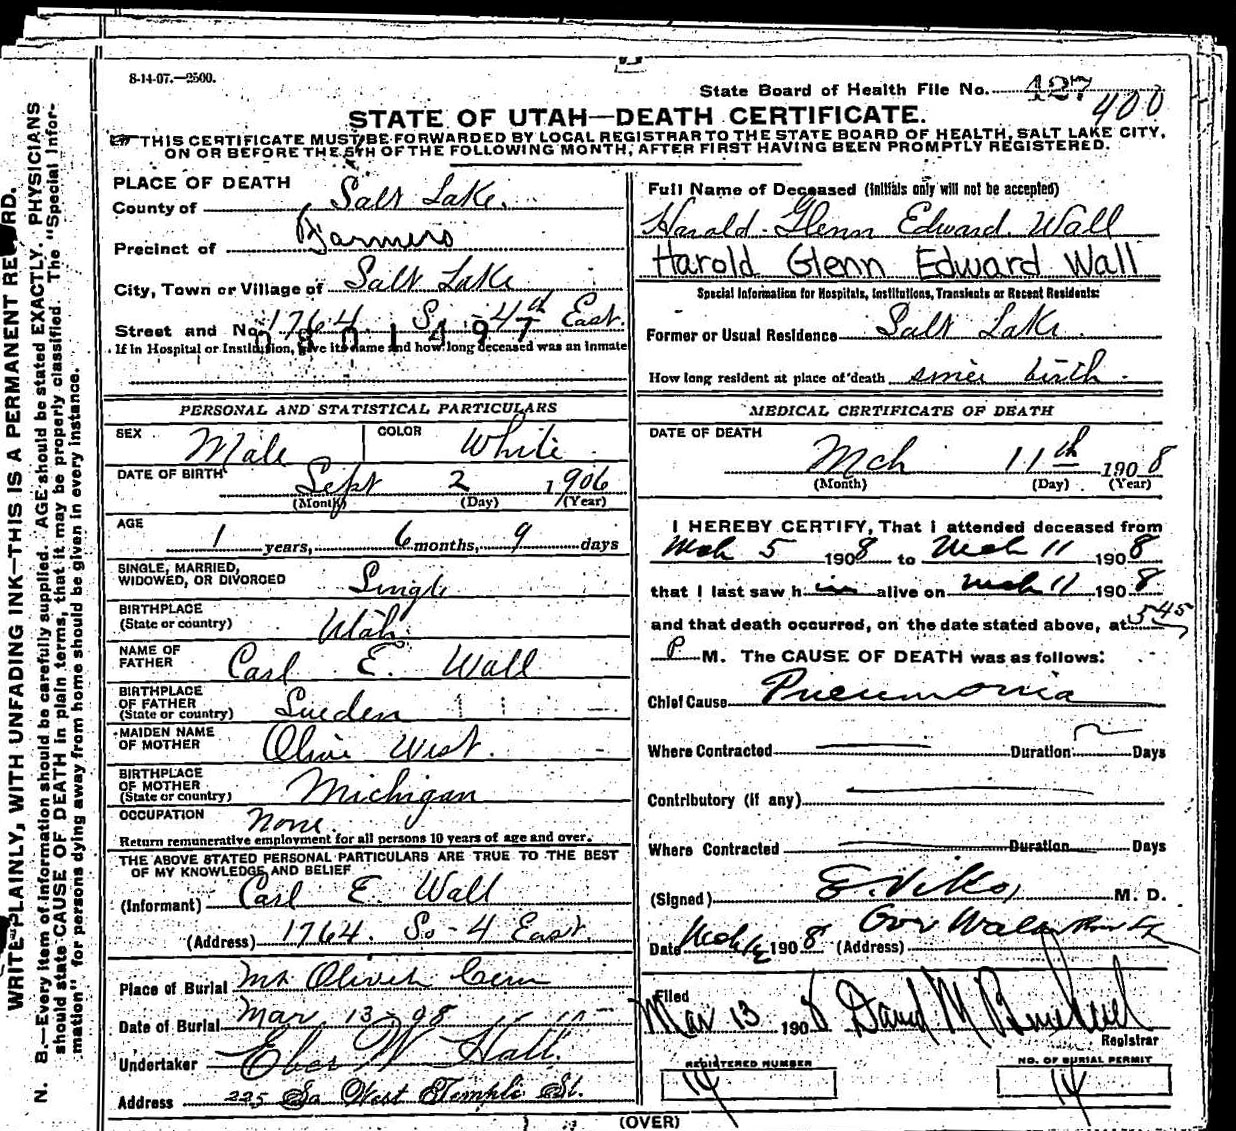 8-14-07.—2500.
State Board of Health File No. 127
400
STATE OF UTAH—DEATH CERTIFICATE.
THIS CERTIFICATE MUST BE FORWARDED BY LOCAL REGISTRAR TO THE STATE BOARD OF HEALTH, SALT LAKE CITY,
ON OR BEFORE THE 5TH OF THE FOLLOWING MONTH, AFTER FIRST HAVING BEEN PROMPTLY REGISTERED.
PLACE OF DEATH
County of Salt Lake.
Precinct of Farmers
City, Town or Village of Salt Lake
Street and No. 1764 S. 4th East.
0801497
If in Hospital or Institution, give its name and how long deceased was an inmate
Full Name of Deceased (Initials only will not be accepted)
Harald Glenn Edward Wall
Harold Glenn Edward Wall
Special Information for Hospitals, Institutions, Transients or Recent Residents:
Former or Usual Residence Salt Lake.
How long resident at place of death since birth.
PERSONAL AND STATISTICAL PARTICULARS
SEX Male COLOR White
DATE OF BIRTH Sept 2 1906
(Month) (Day) (Year)
AGE
1 years, 6 months, 9 days
SINGLE, MARRIED,
WIDOWED, OR DIVORCED Single
BIRTHPLACE
(State or country) Utah.
NAME OF
FATHER Carl E. Wall
BIRTHPLACE
OF FATHER
(State or country) Sueden
MAIDEN NAME
OF MOTHER Olive West.
BIRTHPLACE
OF MOTHER
(State or country) Michigan
OCCUPATION None.
Return remunerative employment for all persons 10 years of age and over.
THE ABOVE STATED PERSONAL PARTICULARS ARE TRUE TO THE BEST
OF MY KNOWLEDGE AND BELIEF
(Informant) Carl E. Wall
(Address) 1764. So - 4 East.
Place of Burial Mt Olivet Cem
Date of Burial Mar 13 - 08
Undertaker Eber W Hall.
Address 225 So West Temple St.
MEDICAL CERTIFICATE OF DEATH
DATE OF DEATH
Mch 11th 1908
(Month) (Day) (Year)
I HEREBY CERTIFY, That I attended deceased from
Mch 5 1908 to Mch 11 1908
that I last saw him alive on Mch 11 1908
and that death occurred, on the date stated above, at 5 45
P M. The CAUSE OF DEATH was as follows:
Chief Cause Pneumonia
Where Contracted Duration Days
Contributory (if any)
Where Contracted Duration Days
(Signed) M. D.
Date 1908 (Address)
Filed
Mar 13 1908 David M
Registrar
REGISTERED NUMBER
14
NO. OF BURIAL PERMIT
14
(OVER)
WRITE PLAINLY, WITH UNFADING INK—THIS IS A PERMANENT RECORD.
N. B.—Every item of information should be carefully supplied. AGE should be stated EXACTLY. PHYSICIANS
should state CAUSE OF DEATH in plain terms, that it may be properly classified. The "Special Infor-
mation" for persons dying away from home should be given in every instance.